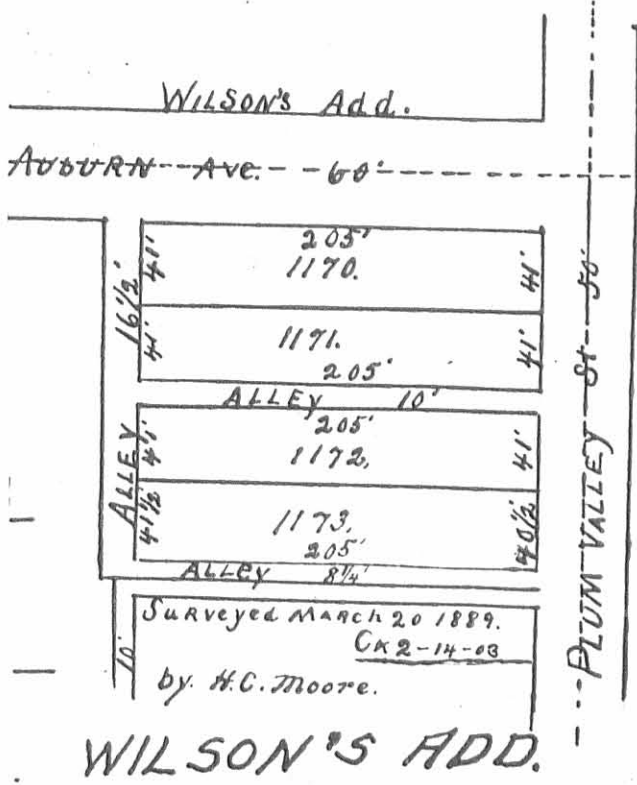 WILSON'S Add.
AUBURN Ave. 60'
205'
1170.
41'
41'
16½'
1171.
205'
41'
41'
ALLEY 10'
205'
1172.
41'
41'
ALLEY
1173.
205'
41½'
40½'
ALLEY 8¼'
PLUM VALLEY St 50'
Surveyed March 20 1889.
CK 2-14-03
by. H.C. Moore.
10'
WILSON'S ADD.